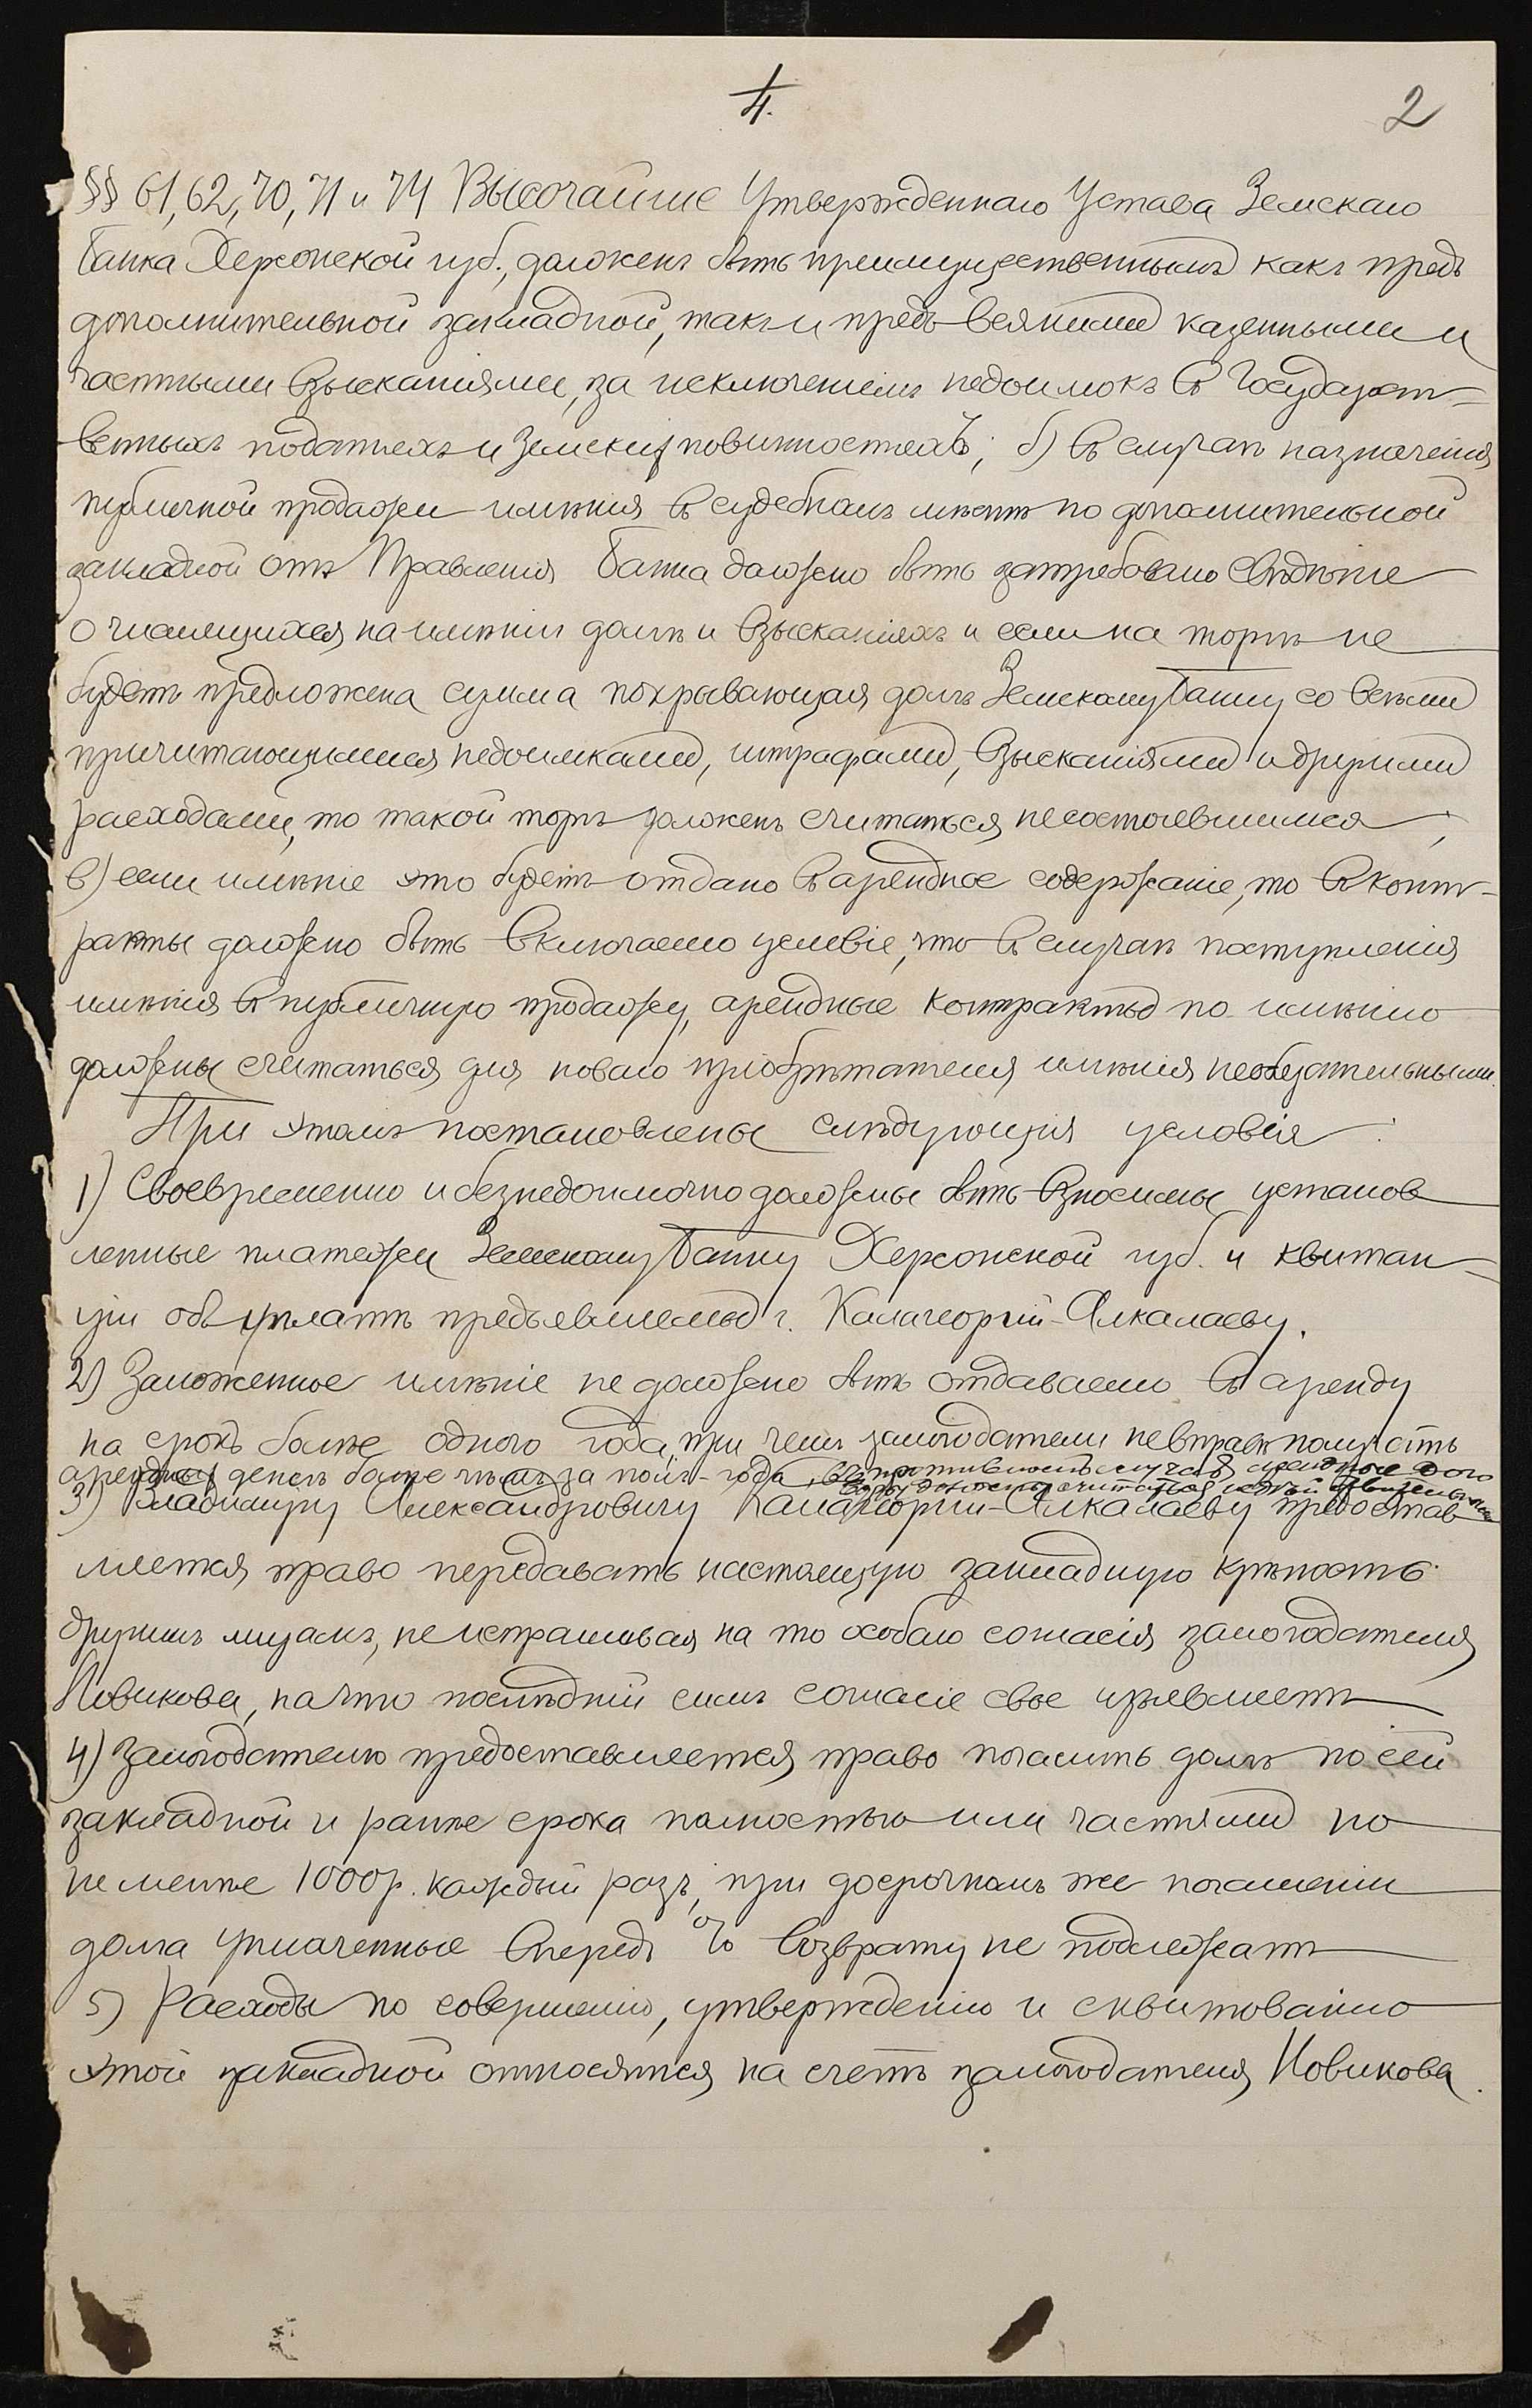 4.
2
§§ 61, 62, 70, 71 и 74 Высочайше Утвержденнаго Устава Земскаго
Банка Херсонской губ., долженъ быть преимущественнымъ какъ предъ
дополнительной закладной, такъ и предъ всякими казенными и
частными взысканіями, за исключеніемъ недоимокъ въ Государст-
венныхъ податяхъ и Земских повинностяхъ; б) въ случаѣ назначенія
публичной продажи имѣнія въ судебномъ мѣстѣ по дополнительной
закладной отъ Правленія Банка должно быть затребовано свѣдѣніе
о числящихся на имѣніи долгѣ и взысканіяхъ и если на торгѣ не
будетъ предложена сумма покрывающая долгъ Земскому Банку со всѣми
причитающимися недоимками, штрафами, взысканіями и другими
расходами, то такой торгъ долженъ считаться несостоявшимся;
в) если имѣніе это будетъ отдано въ арендное содержаніе, то въ конт-
ракты должно быть включаемо условіе, что въ случаѣ поступленія
имѣнія въ публичную продажу, арендные контракты по имѣнію
должны считаться для новаго пріобрѣтателя имѣнія необязательными.
При этомъ постановлены слѣдующія условія:
1) Своевременно и безнедоимочно должны быть вносимы установ
ленные платежи Земскому Банку Херсонской губ. и квитан-
ціи объ уплатѣ предъявляемы г. Калагеоргій-Алкалаеву.
2) Заложенное имѣніе не должно быть отдаваемо въ аренду
на срокъ болѣе одного года, при чемъ залогодатели не вправѣ получать
арендных денегъ болѣе чѣмъ за полъ-года, въ противномъ случаѣ арендные дого
воры должны считаться
3) Владиміру Александровичу Калагеоргій-Алкалаеву предостав
ляется право передавать настоящую закладную крѣпость
другимъ лицамъ, не испрашивая на то особаго согласія залогодателя
Новикова, на что послѣдній симъ согласіе свое изъявляетъ
4) Залогодателю предоставляется право погасить долгъ по сей
закладной и ранѣе срока полностью или частями по
не менѣе 1000 р. каждый разъ, при досрочномъ же погашеніи
долга уплаченные впередъ % возврату не подлежатъ
5) Расходы по совершенію, утвержденію и сквитованію
этой закладной относятся на счетъ залогодателя Новикова.